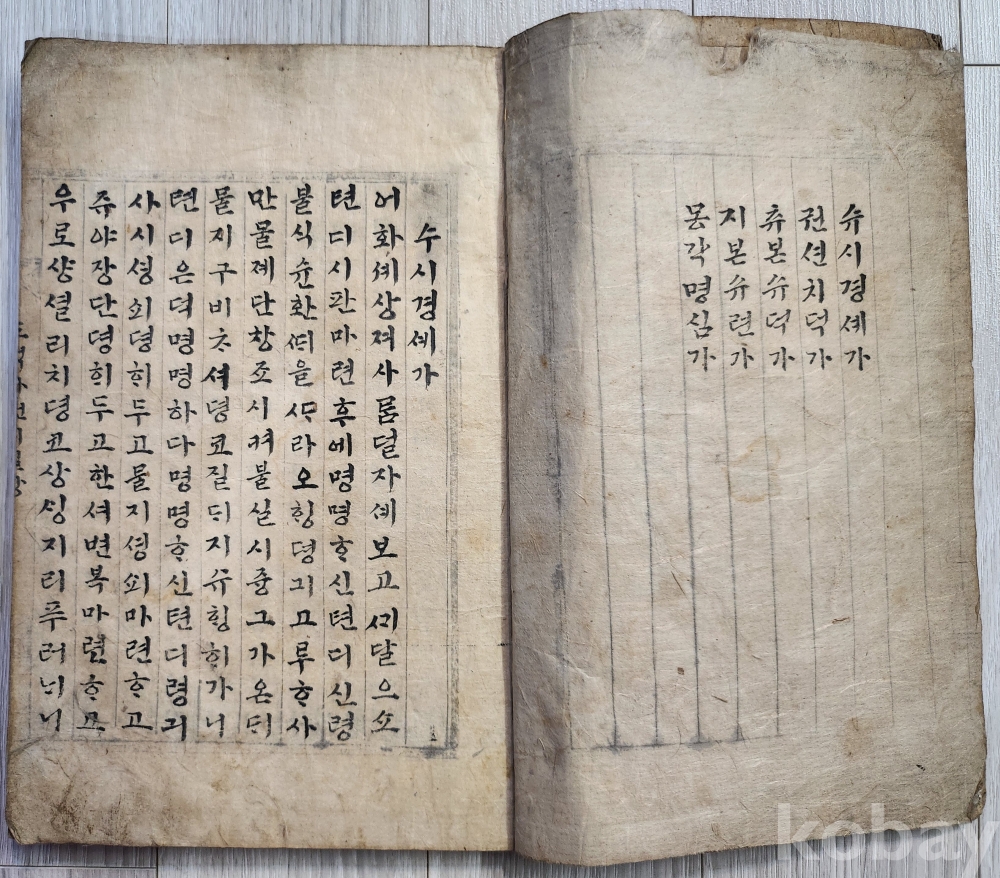 슈시경셰가
권션치덕가
츄본슈덕가
지본슈련가
몽각명심가
수시경세가
어화셰상져사룸덜자셰보고ᄭᆡ달으소
텬디시판마련후에명명ᄒᆞ신텬디신령
불식슌환ᄯᅢ을ᄯᅡ라오ᄒᆡᆼ뎡긔고루ᄒᆞ사
만물졔단창조시켜불실시즁그가온ᄃᆡ
물지구비ᄎᆞ셔뎡코질ᄃᆡ지유ᄒᆡᆼᄒᆡ가니
텬디은덕명명하다명명ᄒᆞ신텬디령긔
사시셩쇠뎡ᄒᆡ두고물지셩쇠마련ᄒᆞ고
쥬야장단뎡ᄒᆡ두고한셔변복마련ᄒᆞ고
우로샹셜리치뎡코상ᄉᆡᆼ지리푸러ᄂᆡ니
kobay